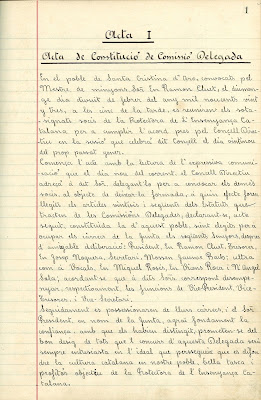 1
Acta I
Acta de Constitució de Comissió Delegada
En el poble de Santa Cristina d'Aro, convocats pel
Mestre de minyons, Sor. En Ramon Cluet, el diumen-
ge dia divuit de febrer del any mil noucents vint
y tres, a les cinc de la tarde, es reuniren els sota-
signats socis de la Protectora de l'Ensenyança Ca-
talana per a cumplir l'acord pres pel Consell Direc-
tiu en la reunió que celebrá dit Consell el dia vintinou
del prop passat gener.
Comença l'acte amb la lectura de l'expressiva comuni-
cació que el dia nou del corrent, el Consell Directiu
adreçá a dit Sor. delegant-lo per a convocar els demés
socis, al objecte de deixar-la formada, á quin fi foren
llegits els articles vintisis y següents dels Estatuts que
tracten de les Comissions Delegades; declarant-se, acte
seguit, constituida la d'aquest poble, sent elegits per a
ocupar els cárrecs de la Junta els següents Senyors, després
d'amigable deliberació: President, En Ramon Cluet, Tresorer,
en Josep Noguera, Secretari, Mossen Jaume Prats; ultra
com á Vocals, En Miquel Rosés, En Mariá Roca y Miquel
Sala, acordant-se que a dits Srs. correspont desempe-
nyar, respectivament, les funcions de Vis-President, Vice-
Tresorer, i Vis-Secretari.
Seguidament es possesionaren de llurs cárrecs, i el Sor.
President, en nom de la Junta, agraí fondament la
confiança amb que els havien distingit, prometen-se del
bon desig de tots que l'esmerç de aquesta Delegada será
sempre entusiasta en l'ideal que persegueix que es difon-
dre la cultura catalana en nostre poble, bella tasca i
profitós objectiu de la Protectora de l'Ensenyança Ca-
talana.